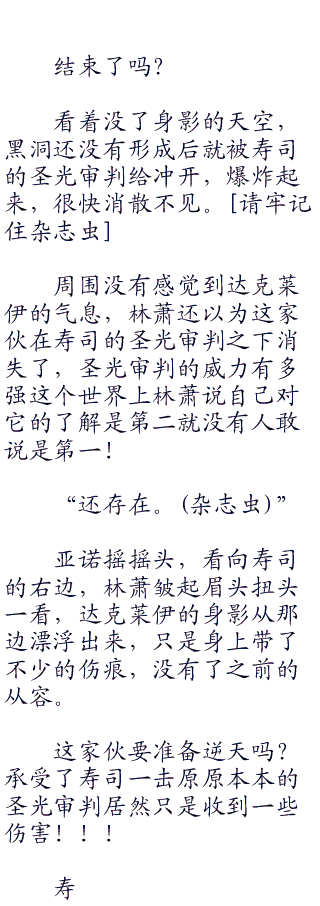 结束了吗？
看着没了身影的天空，
黑洞还没有形成后就被寿司
的圣光审判给冲开，爆炸起
来，很快消散不见。[请牢记
住杂志虫]
周围没有感觉到达克莱
伊的气息，林萧还以为这家
伙在寿司的圣光审判之下消
失了，圣光审判的威力有多
强这个世界上林萧说自己对
它的了解是第二就没有人敢
说是第一！
“还存在。(杂志虫)”
亚诺摇摇头，看向寿司
的右边，林萧皱起眉头扭头
一看，达克莱伊的身影从那
边漂浮出来，只是身上带了
不少的伤痕，没有了之前的
从容。
这家伙要准备逆天吗？
承受了寿司一击原原本本的
圣光审判居然只是收到一些
伤害！！！
寿